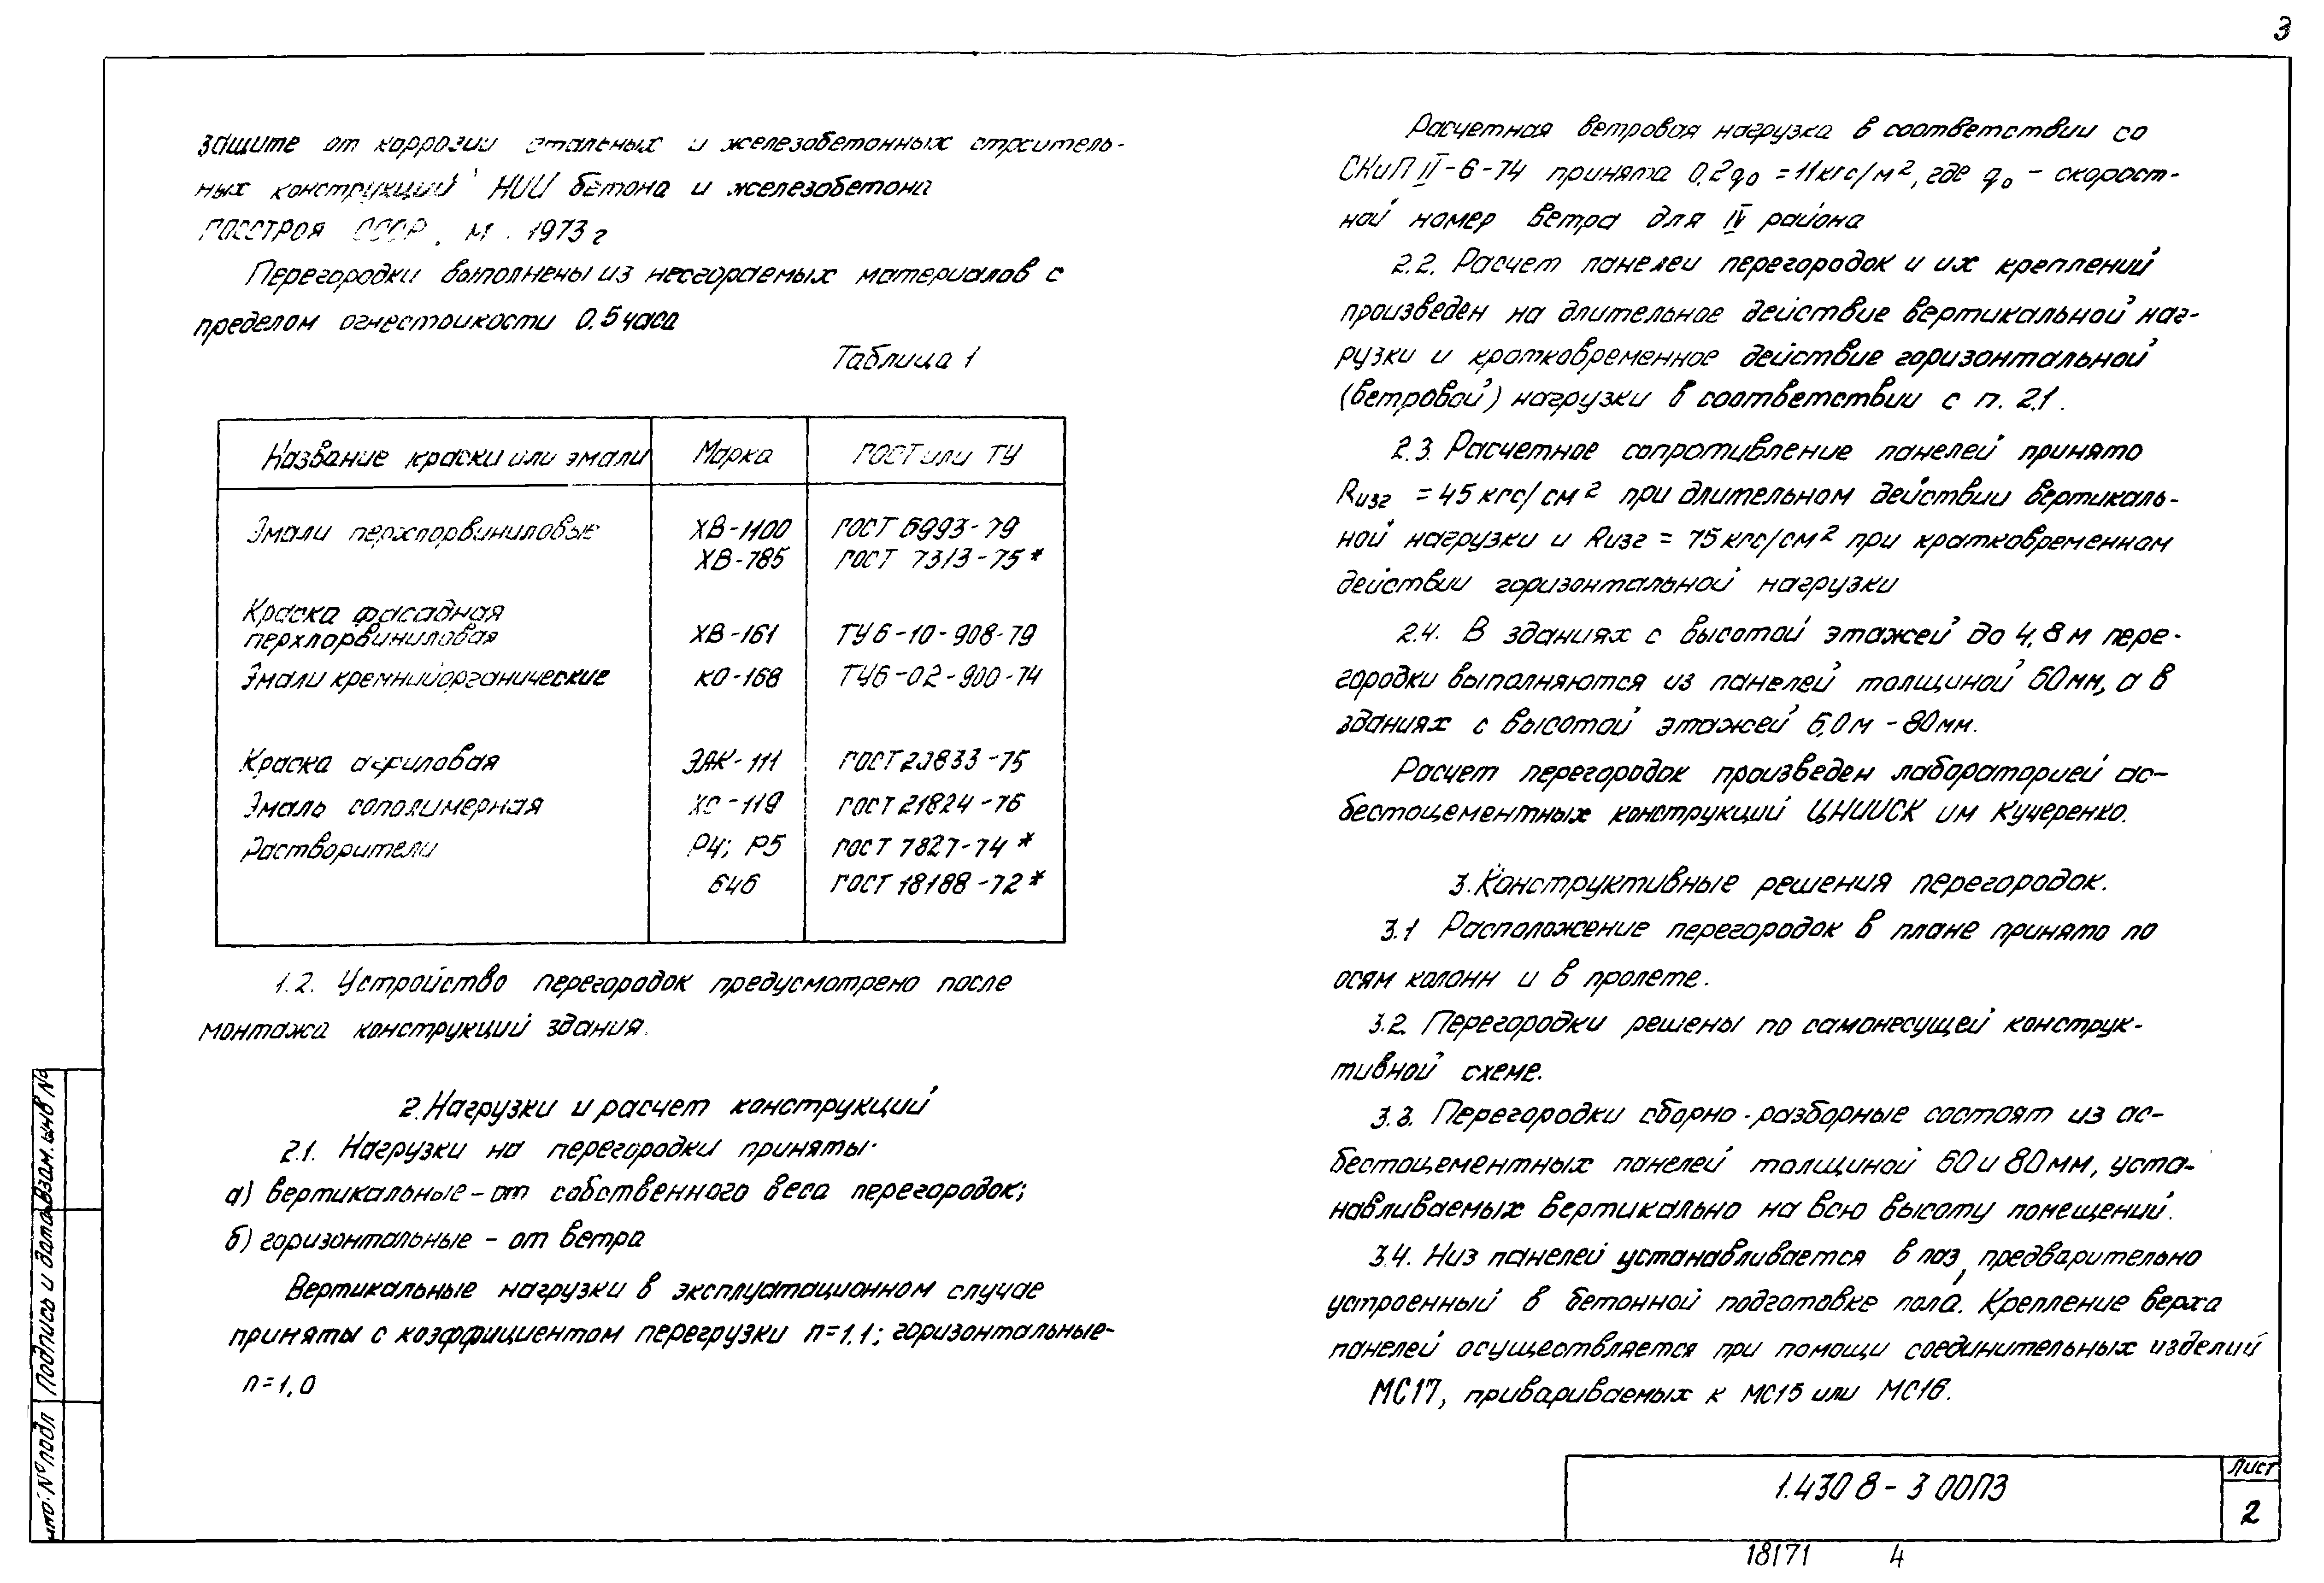 3
защите от коррозии стальных и железобетонных строитель-
ных конструкций" НИИ бетона и железобетона
Госстроя СССР. М. 1973г
Перегородки выполнены из несгораемых материалов с
пределом огнестойкости 0.5 часа
Таблица 1
Название краски или эмали Марка ГОСТ или ТУ
Эмали перхлорвиниловые ХВ-1100 ГОСТ 6993-79
ХВ-785 ГОСТ 7313-75*
Краска фасадная
перхлорвиниловая ХВ-161 ТУ6-10-908-79
Эмали кремнийорганические КО-168 ТУ6-02-900-74
Краска акриловая ЭАК-111 ГОСТ 20833-75
Эмаль сополимерная ХС-119 ГОСТ 21824-76
Растворители Р4; Р5 ГОСТ 7827-74*
646 ГОСТ 18188-72*
1.2. Устройство перегородок предусмотрено после
монтажа конструкций здания.
2. Нагрузки и расчет конструкций
2.1. Нагрузки на перегородки приняты:
а) вертикальные - от собственного веса перегородок;
б) горизонтальные - от ветра
Вертикальные нагрузки в эксплуатационном случае
приняты с коэффициентом перегрузки n=1,1; горизонтальные-
n=1,0
Расчетная ветровая нагрузка в соответствии со
СНиП II-6-74 принята 0,2q₀ = 11кгс/м², где q₀ - скорост-
ной номер ветра для IV района
2.2. Расчет панелей перегородок и их креплений
произведен на длительное действие вертикальной наг-
рузки и кратковременное действие горизонтальной
(ветровой) нагрузки в соответствии с п. 2.1.
2.3. Расчетное сопротивление панелей принято
Rизг = 45 кгс/см² при длительном действии вертикаль-
ной нагрузки и Rизг = 75 кгс/см² при кратковременном
действии горизонтальной нагрузки
2.4. В зданиях с высотой этажей до 4,8 м пере-
городки выполняются из панелей толщиной 60мм, а в
зданиях с высотой этажей 6,0м - 80мм.
Расчет перегородок произведен лабораторией ас-
бестоцементных конструкций ЦНИИСК им Кучеренко.
3. Конструктивные решения перегородок.
3.1 Расположение перегородок в плане принято по
осям колонн и в пролете.
3.2. Перегородки решены по самонесущей конструк-
тивной схеме.
3.3. Перегородки сборно-разборные состоят из ас-
бестоцементных панелей толщиной 60 и 80мм, уста-
навливаемых вертикально на всю высоту помещений.
3.4. Низ панелей устанавливается в паз, предварительно
устроенный в бетонной подготовке пола. Крепление верха
панелей осуществляется при помощи соединительных изделий
МС17, привариваемых к МС15 или МС16.
Взам. инв №
Подпись и дата
№ подл
1.430 8 - 3 00ПЗ
Лист
2
18171 4